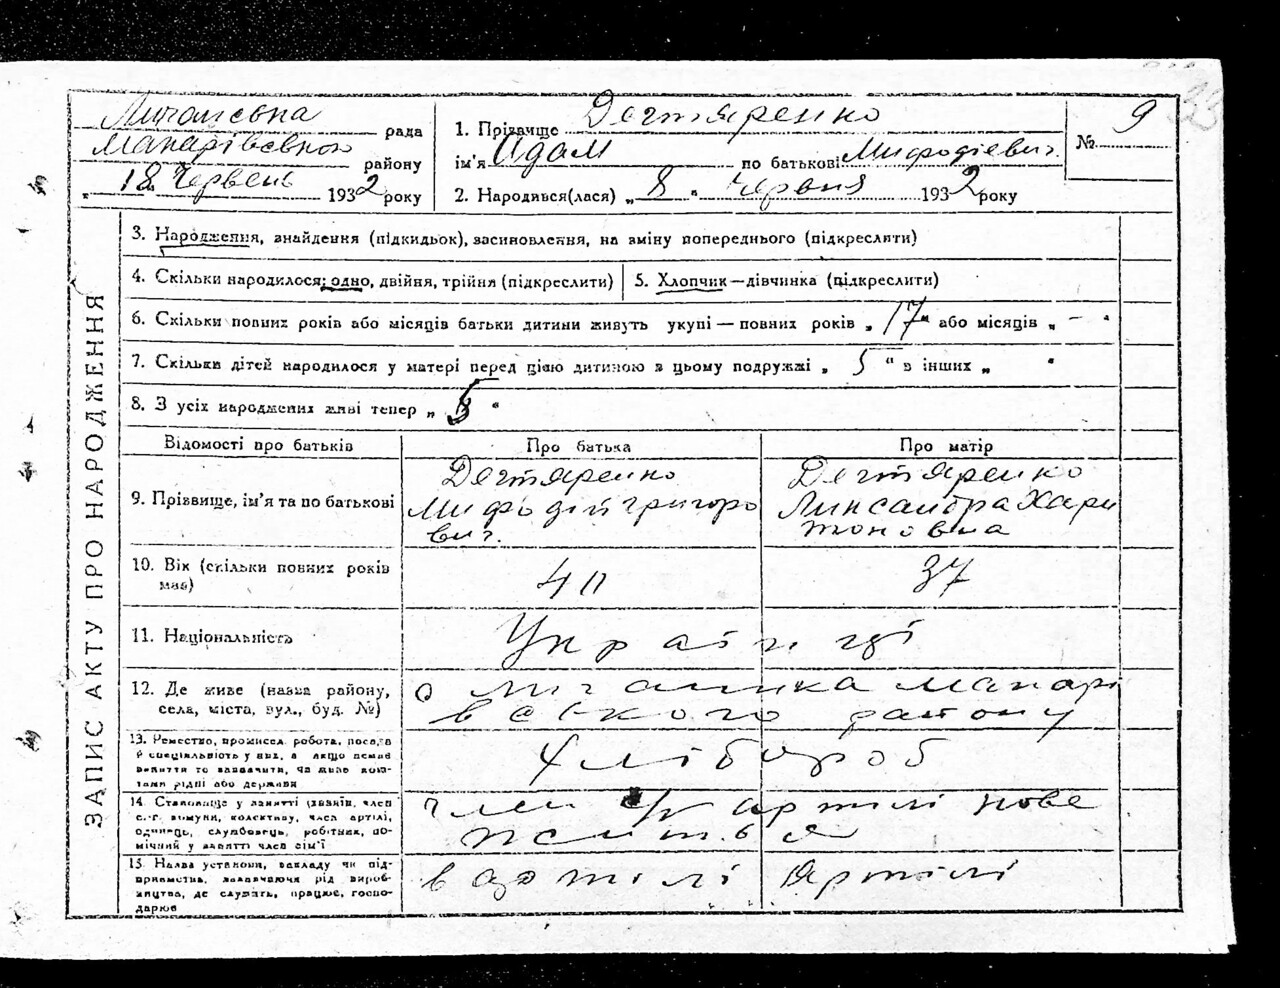 Личанська рада
Макарівського району
„ 18 Червень 1932 року
1. Прізвище Дегтяренко
ім'я Адам по батькові Мифодієвич.
2. Народився(лася) „ 8 " Червня 1932 року
№ 9
33
ЗАПИС АКТУ ПРО НАРОДЖЕННЯ
3. Народження, знайдення (підкидьок), засиновлення, на зміну попереднього (підкреслити)
4. Скільки народилося: одно, двійня, трійня (підкреслити)
5. Хлопчик—дівчинка (підкреслити)
6. Скільки повних років або місяців батьки дитини живуть укупі — повних років „ 17 " або місяців „ — "
7. Скільки дітей народилося у матері перед цією дитиною в цьому подружжі „ 5 " в інших „ "
8. З усіх народжених живі тепер „ 5 "
Відомості про батьків Про батька Про матір
9. Прізвище, ім'я та по батькові
Дегтяренко
Мифодій Григоро
вич.
Дегтяренко
Хари
тоновна
10. Вік (скільки повних років
має)
40
37
11. Національність
Українці
12. Де живе (назва району,
села, міста, вул., буд. №)
с Личанка Макарі
вського району
13. Ремество, промисел, робота, посада
й спеціальність у них, а якщо немає
заняття то зазначити, чи живе кош-
тами рідні або держави
Хлібороб
14. Становище у занятті (хазяїн, член
с.-г. комуни, колективу, член артілі,
одинець, службовець, робітник, по-
мічний у занятті член сім'ї
член с/г артілі нове
життья
15. Назва установи, закладу чи під-
приємства, зазначаючи рід вироб-
ництва, де служать, працює, госпо-
дарює
в артілі
Артілі